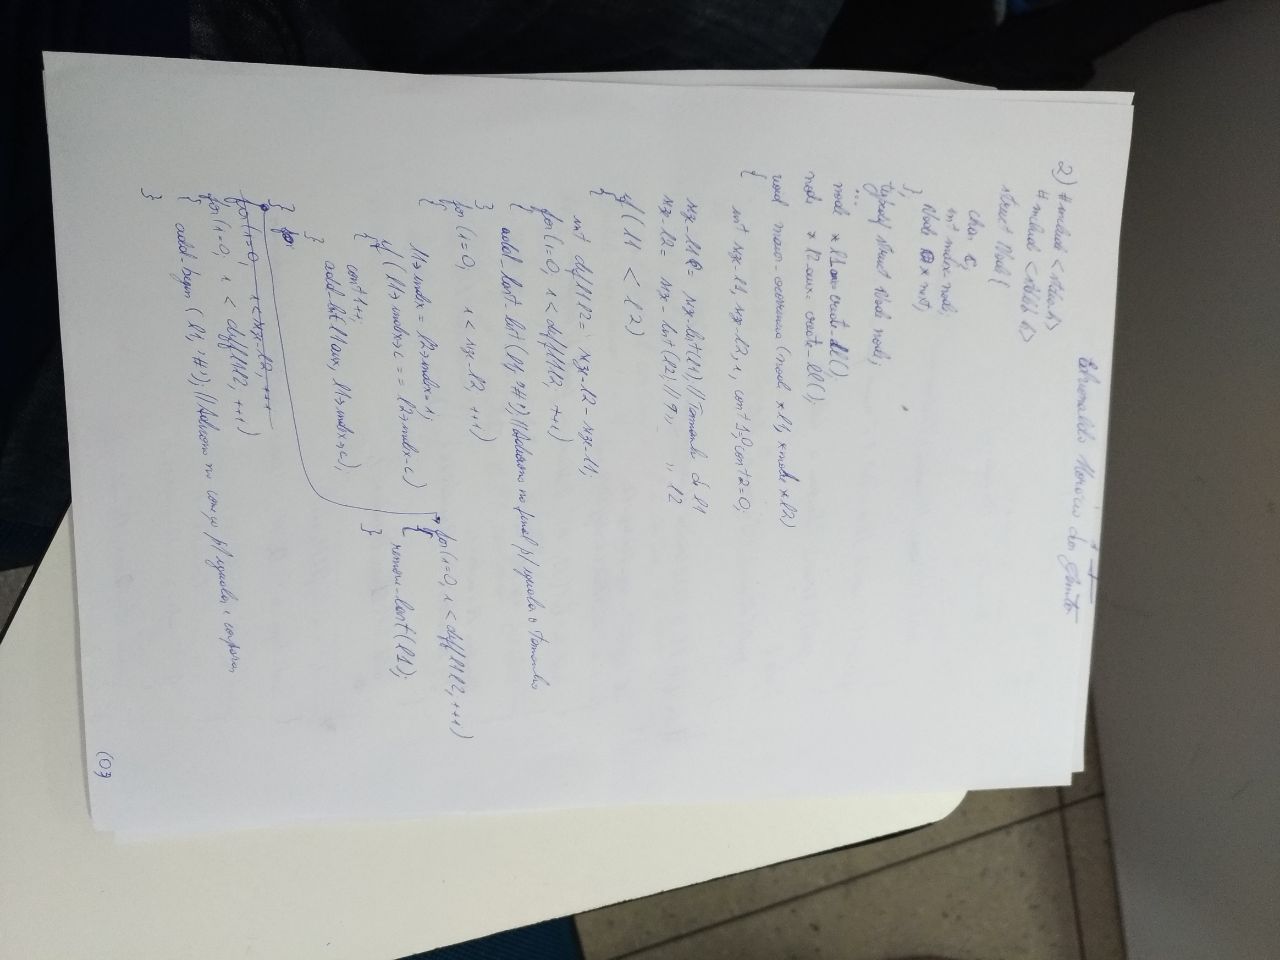 Edvonaldo Horácio dos Santos
2) #include <stdio.h>
#includ <stdlib.h>
struct Node{
char c;
int index_node;
Node * next;
};
typedef struct Node node;
...
node *l1aux= create_ll();
node *l2_aux= create_ll();
void maior_ocorrencia(node *l1, *node *l2)
{
int size_l1, size_l2, i, cont1=0, cont2=0;
size_l1 = size_list(l1); // Tamanho de l1
size_l2= size_list(l2); // " " l2
if(l1 < l2)
{
int diffl1l2= size_l2 - size_l1;
for(i=0; i < diffl1l2; ++i)
{
add_last_list(l1, '#'); //Adiciono no final p/ igualar o tamanho
}
for(i=0; i < size_l2, ++i)
{
l1->index = l2->index= i;
if(l1->index->c == l2->index->c)
{
cont1++;
add_list(l1aux, l1->index->c);
}
}
for(i=0, i < diffl1l2, ++i)
{
remove_last(l1);
}
for(i=0; i < size_l2, ++i
for(i=0; i < diffl1l2, ++i)
{
add_begin(l1, '#'); //Adiciono no começo p/ igualar e comparar
}
(03